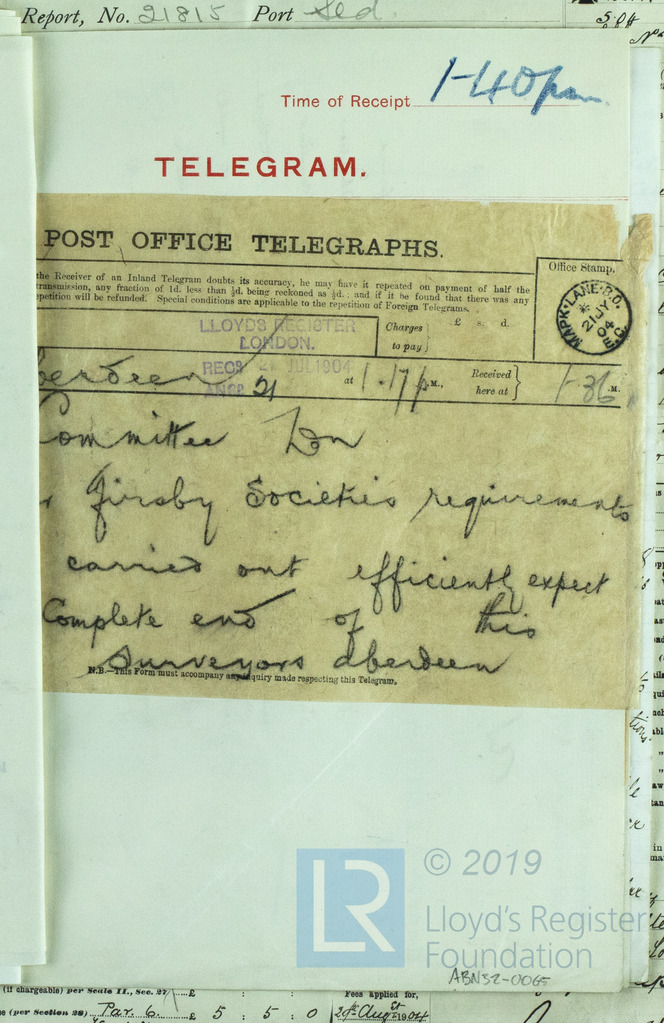 Report, No. 21815 Port Sld.
Time of Receipt 1-40pm
TELEGRAM.
POST OFFICE TELEGRAPHS.
the Receiver of an Inland Telegram doubts its accuracy, he may have it repeated on payment of half the
transmission, any fraction of 1d. less than ½d. being reckoned as ½d.; and if it be found that there was any
repetition will be refunded. Special conditions are applicable to the repetition of Foreign Telegrams.
Office Stamp.
MARK-LANE-B.O.
21 JY
04
E.C.
Charges to pay
£ s. d.
LLOYDS REGISTER
LONDON.
RECD 21 JUL 1904
ANSD
berdeen 21 at 1.17 P.M., Received here at 1-36 M.
Committee Ldn
Firsby Societies requirements
carried out efficiently expect
Complete end of this
Surveyors Aberdeen
N.B.—This Form must accompany any inquiry made respecting this Telegram.
LR © 2019
Lloyd's Register
Foundation
ABN32-0065
(if chargeable) per Scale II., Sec. 27 £ : :
(per Section 28) Par. 6. £ 5 : 5 : 0
Fees applied for,
29th Augst 1904